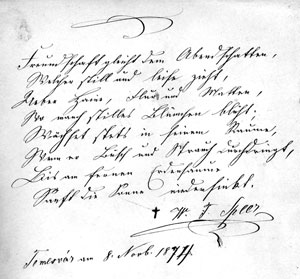 Freundschaft gleicht dem Abendschatten,
Welcher still und leise zieht,
Ueber Haine, Fluß und Matten,
Wo manch stilles Blümchen blüht;
Wächset stets in seinem Raume,
Wenn er Busch und Strauch durchdringt,
Bis am fernen Erdensaume
Sanft die Sonne niedersinkt.
† W. J. Speer
Temesvár am 8. Novb.